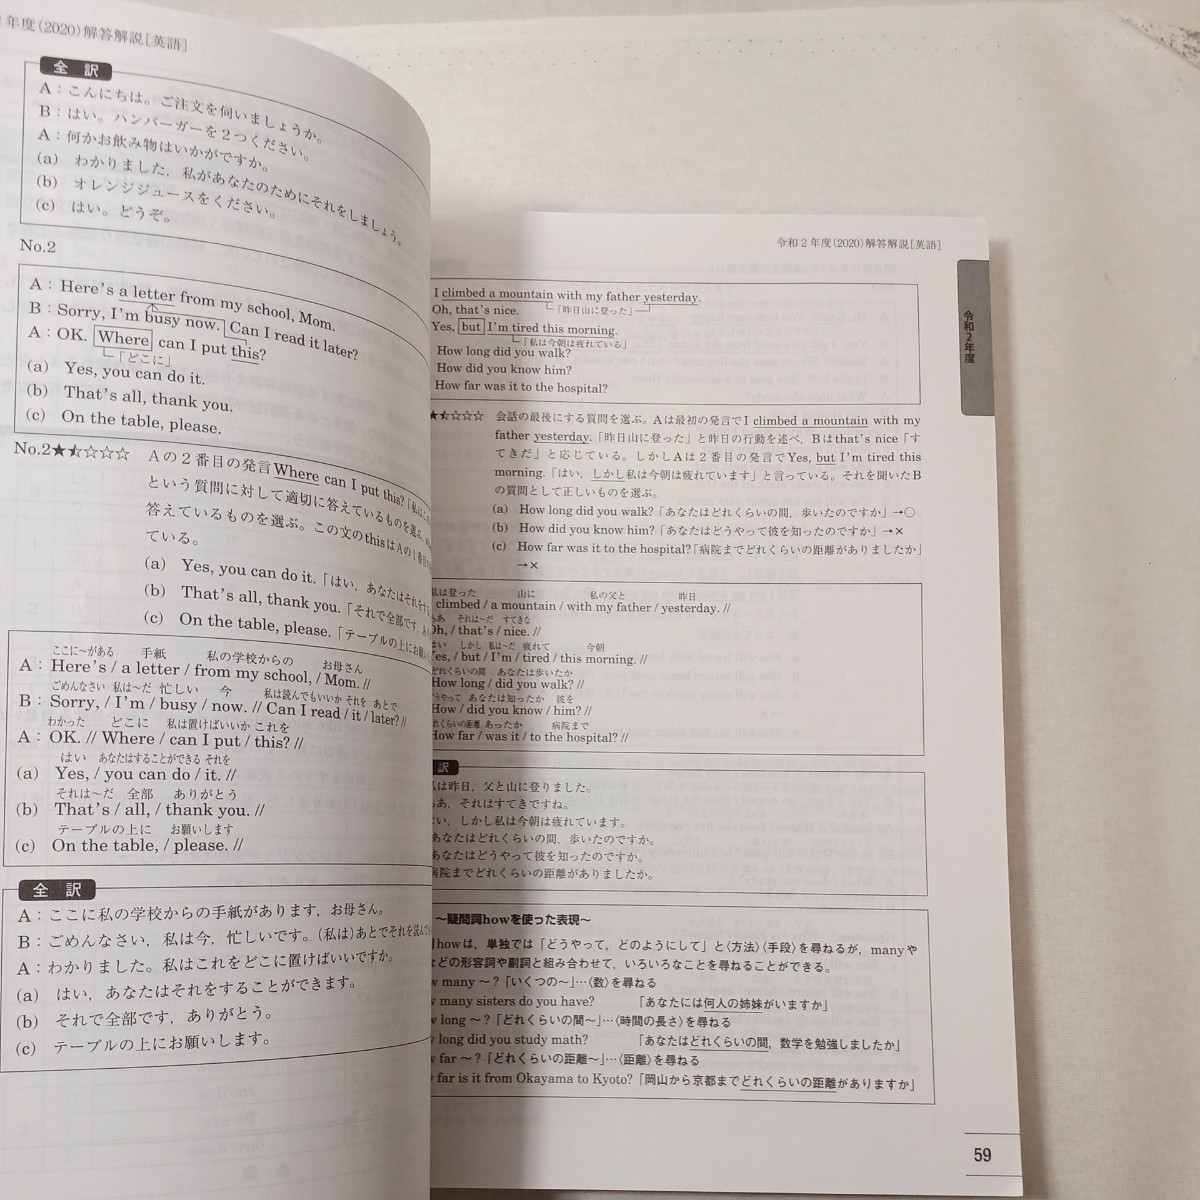 年度(2020)解答解説[英語]
全 訳
A：こんにちは。ご注文を伺いましょうか。
B：はい。ハンバーガーを2つください。
A：何かお飲み物はいかがですか。
(a) わかりました，私があなたのためにそれをしましょう。
(b) オレンジジュースをください。
(c) はい。どうぞ。
No.2
A：Here's a letter from my school, Mom.
B：Sorry, I'm busy now. Can I read it later?
A：OK. Where can I put this?
「どこに」
(a) Yes, you can do it.
(b) That's all, thank you.
(c) On the table, please.
No.2★⯪☆☆☆☆ Aの2番目の発言Where can I put this?「私はこれ
という質問に対して適切に答えているものを選ぶ。
答えているものを選ぶ。この文のthisはAの1番目の
ている。
(a) Yes, you can do it.「はい，あなたはそれをす
(b) That's all, thank you.「それで全部です，あり
(c) On the table, please.「テーブルの上にお願い
ここに〜がある 手紙 私の学校からの お母さん
A：Here's / a letter / from my school, / Mom. //
ごめんなさい 私は〜だ 忙しい 今 私は読んでもいいか それを あとで
B：Sorry, / I'm / busy / now. // Can I read / it / later? //
わかった どこに 私は置けばいいか これを
A：OK. // Where / can I put / this? //
はい あなたはすることができる それを
(a) Yes, / you can do / it. //
それは〜だ 全部 ありがとう
(b) That's / all, / thank you. //
テーブルの上に お願いします
(c) On the table, / please. //
全 訳
A：ここに私の学校からの手紙があります，お母さん。
B：ごめんなさい，私は今，忙しいです。(私は)あとでそれを読んで
A：わかりました。私はこれをどこに置けばいいですか。
(a) はい，あなたはそれをすることができます。
(b) それで全部です，ありがとう。
(c) テーブルの上にお願いします。
令和2年度(2020)解答解説[英語]
令和2年度
I climbed a mountain with my father yesterday.
Oh, that's nice. 「昨日山に登った」
Yes, but I'm tired this morning.
「私は今朝は疲れている」
How long did you walk?
How did you know him?
How far was it to the hospital?
★⯪☆☆☆ 会話の最後にする質問を選ぶ。Aは最初の発言でI climbed a mountain with my
father yesterday.「昨日山に登った」と昨日の行動を述べ，Bはthat's nice「す
てきだ」と応じている。しかしAは2番目の発言でYes, but I'm tired this
morning.「はい，しかし私は今朝は疲れています」と言っている。それを聞いたB
の質問として正しいものを選ぶ。
(a) How long did you walk?「あなたはどれくらいの間，歩いたのですか」→○
(b) How did you know him?「あなたはどうやって彼を知ったのですか」→×
(c) How far was it to the hospital?「病院までどれくらいの距離がありましたか」
→×
私は登った 山に 私の父と 昨日
climbed / a mountain / with my father / yesterday. //
ああ それは〜だ すてきな
Oh, / that's / nice. //
はい しかし 私は〜だ 疲れて 今朝
Yes, / but / I'm / tired / this morning. //
どれくらいの間 あなたは歩いたか
How long / did you walk? //
どうやって あなたは知ったか 彼を
How / did you know / him? //
どれくらいの距離 あったか 病院まで
How far / was it / to the hospital? //
訳
私は昨日，父と山に登りました。
ああ，それはすてきですね。
はい，しかし私は今朝は疲れています。
あなたはどれくらいの間，歩いたのですか。
あなたはどうやって彼を知ったのですか。
病院までどれくらいの距離がありましたか。
〜疑問詞howを使った表現〜
howは，単独では「どうやって，どのようにして」と〈方法〉〈手段〉を尋ねるが，manyや
などの形容詞や副詞と組み合わせて，いろいろなことを尋ねることができる。
w many 〜？「いくつの〜」…〈数〉を尋ねる
w many sisters do you have? 「あなたには何人の姉妹がいますか」
w long 〜？「どれくらいの間〜」…〈時間の長さ〉を尋ねる
w long did you study math? 「あなたはどれくらいの間，数学を勉強しましたか」
w far 〜？「どれくらいの距離〜」…〈距離〉を尋ねる
far is it from Okayama to Kyoto?「岡山から京都までどれくらいの距離がありますか」
59